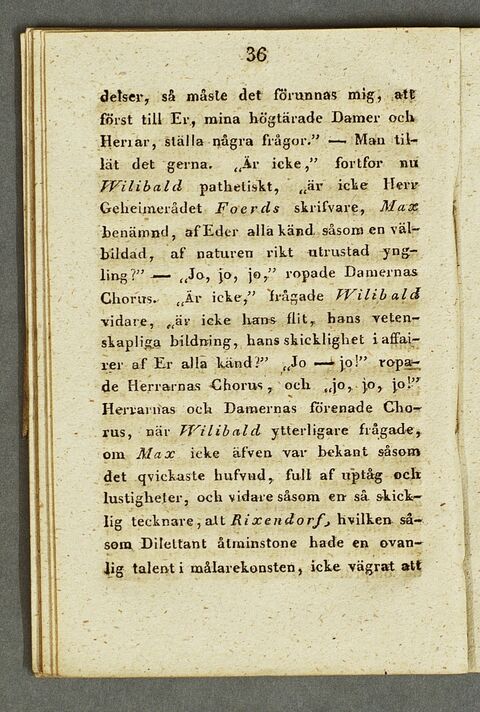 36
delser, så måste det förunnas mig, att
först till Er, mina högtärade Damer och
Herrar, ställa några frågor.” — Man til-
lät det gerna. „Är icke,” fortfor nu
Wilibald pathetiskt, „är icke Herr
Geheimerådet Foerds skrifvare, Max
benämnd, af Eder alla känd såsom en väl-
bildad, af naturen rikt utrustad yng-
ling?” — „Jo, jo, jo,” ropade Damernas
Chorus. „Är icke,” frågade Wilibald
vidare, „är icke hans flit, hans veten-
skapliga bildning, hans skicklighet i affai-
rer af Er alla känd?” „Jo — jo!” ropa-
de Herrarnas Chorus, och „jo, jo, jo!”
Herrarnas och Damernas förenade Cho-
rus, när Wilibald ytterligare frågade,
om Max icke äfven var bekant såsom
det qvickaste hufvud, full af uptåg och
lustigheter, och vidare såsom en så skick-
lig tecknare, att Rixendorf, hvilken så-
som Dilettant åtminstone hade en ovan-
lig talent i målarekonsten, icke vägrat att